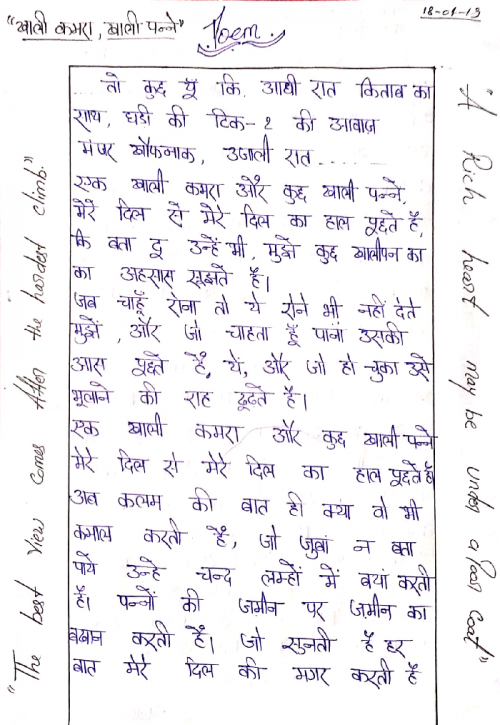 18-01-19
"खाली कमरा, खाली पन्ने"
Poem
तो कुछ यूँ कि आधी रात किताब का
साथ, घडी की टिक-2 की आवाज
मंजर खौफनाक, उजाली रात ......
एक खाली कमरा और कुछ खाली पन्ने,
मेरे दिल से मेरे दिल का हाल पूछते है,
कि बता दू उन्हें भी, मुझे कुछ खालीपन का
का अहसास सूझते है।
जब चाहूँ रोना तो ये रोने भी नहीं देते
मुझे, और जो चाहता हूँ पाना उसकी
आस पूछते है, ये, और जो हो चुका उसे
भूलाने की राह ढूढते है।
एक खाली कमरा और कुछ खाली पन्ने
मेरे दिल से मेरे दिल का हाल पूछते है।
अब कलम की बात ही क्या वो भी
कमाल करती है, जो जुबां न बता
पाये उन्हे चन्द लम्हों में बयां करती
है। पन्नों की जमीन पर जमीन का
बखान करती है। जो सुनती है हर
बात मेरे दिल की मगर करती है
"The best view comes After the hardest climb."
"A Rich heart may be under a Poor coat"